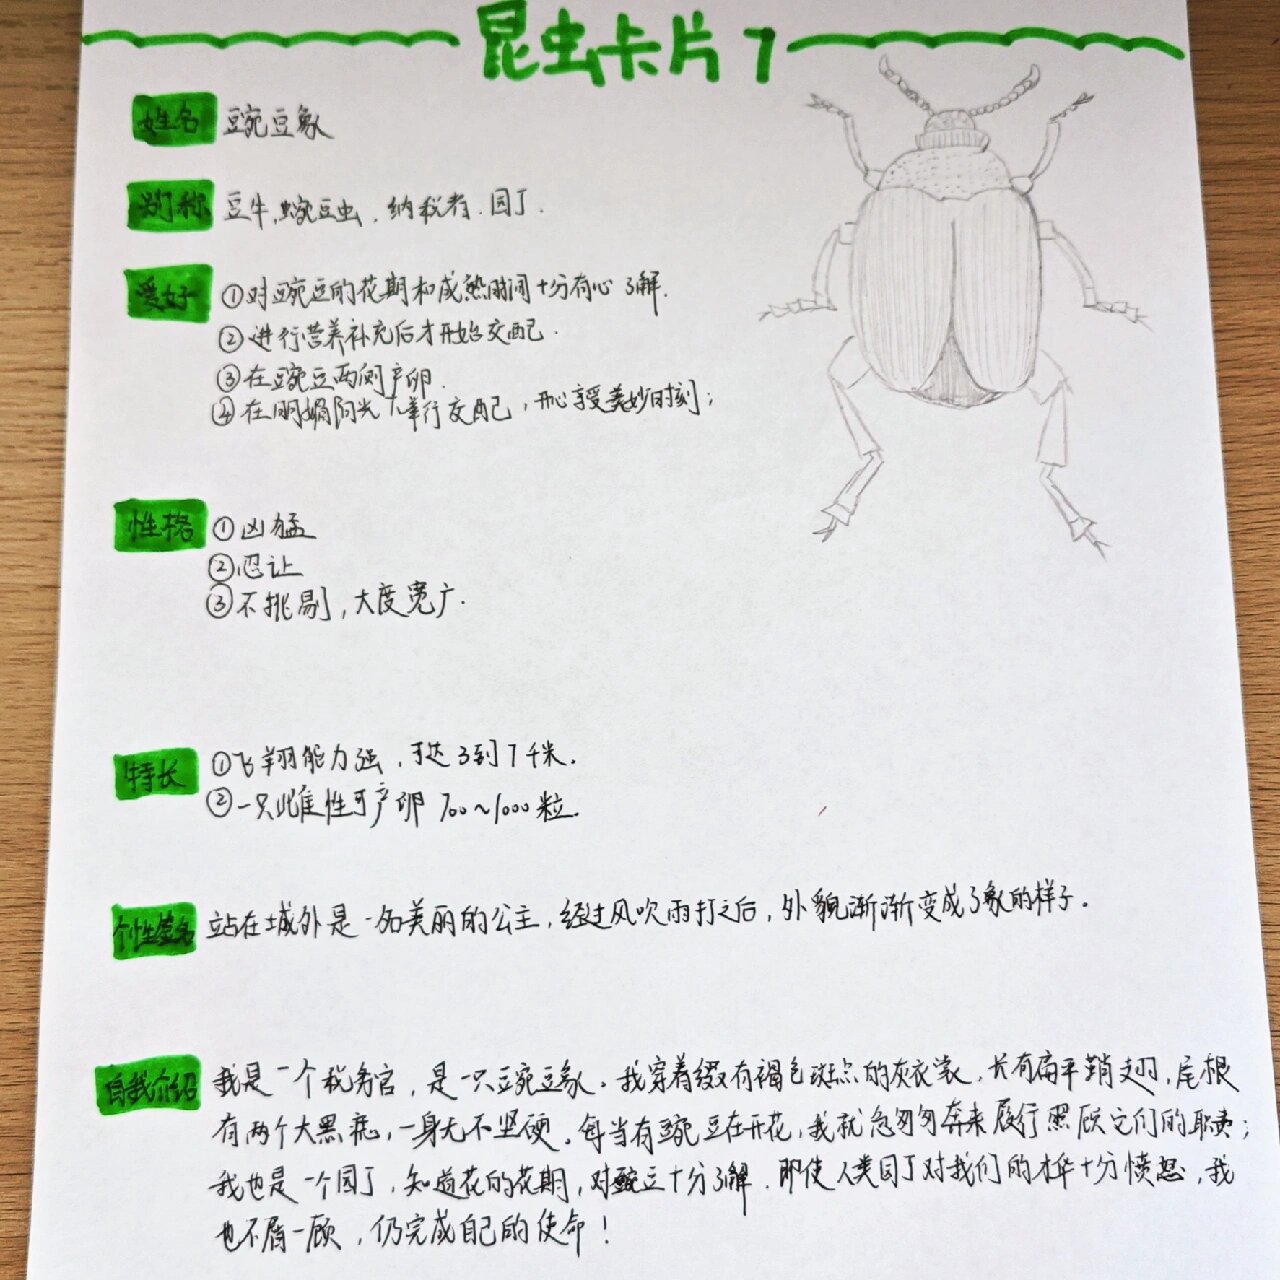 昆虫卡片7
姓名 豌豆象
别称 豆牛,豌豆虫,纳税者.园丁.
爱好 ①对豌豆的花期和成熟时间十分有心了解.
②进行营养补充后才开始交配.
③在豌豆两侧产卵.
④在明媚阳光下举行交配,开心享受美妙时刻;
性格 ①凶猛
②忍让
③不挑剔,大度宽广.
特长 ①飞翔能力强,可达3到7千米.
②一只雌性可产卵700~1000粒.
个性签名 站在城外是一名美丽的公主,经过风吹雨打之后,外貌渐渐变成了象的样子.
自我介绍 我是一个税务官,是一只豌豆象.我穿着缀有褐色斑点的灰衣裳,长有扁平鞘翅,尾根
有两个大黑痣,一身无不坚硬.每当有豌豆在开花,我就急匆匆奔来履行照顾它们的职责;
我也是一个园丁,知道花的花期,对豌豆十分了解.即使人类园丁对我们的才华十分愤怒,我
也不屑一顾,仍完成自己的使命!